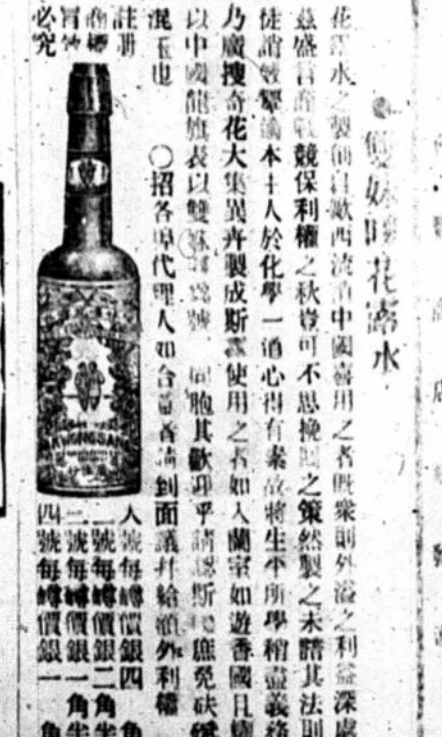 雙妹嘜花露水
花露水之製師自歐西流消中國喜用之者既衆則外溢之利益深處
茲盛言商戰競保利權之秋豈可不思挽囘之策然製之未諳其法則
徒誚效顰 本主人於化學一道心得有素故將生平所學稍盡義務
乃廣搜奇花大集異卉製成斯露使用之者如入蘭室如遊香國且
以中國龍旗表以雙妹 爲號 同胞其歡迎乎請認斯 庶免砆
混玉也 〇招各埠代理人如合意者請到面議幷給額外利權
註册
商標
冒效
必究
KWONG SANG
大號每樽價銀四角
二號每樽價銀二角半
三號每樽價銀一角半
四號每樽價銀一角